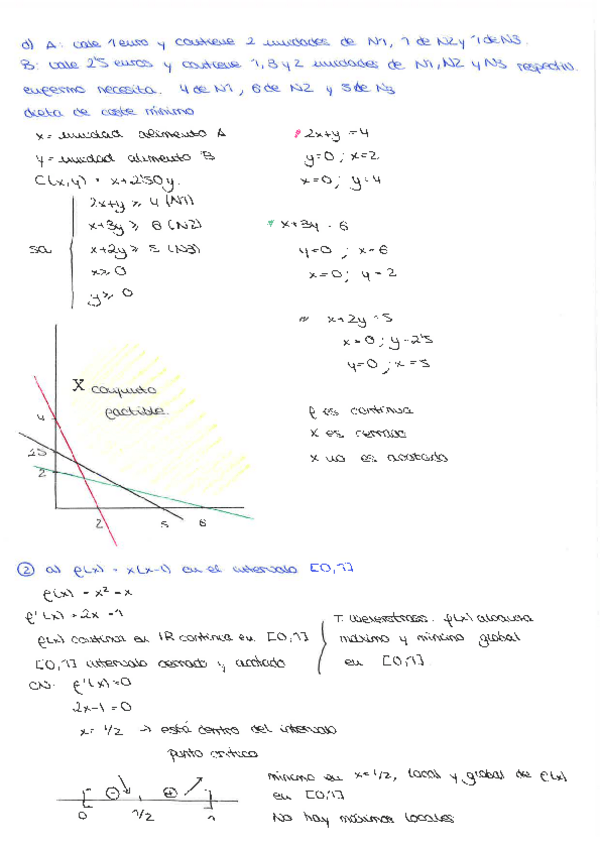 d) A: vale 1 euro y contiene 2 unidades de N1, 1 de N2 y 1 de N3.
B: vale 2'5 euros y contiene 1, 3 y 2 unidades de N1, N2 y N3 respectiv.
enfermo necesita: 4 de N1, 6 de N2 y 5 de N3
dieta de coste mínimo
x = unidad alimento A
y = unidad alimento B
C(x,y) = x+2'50y.
sa
2x+y ≥ 4 (N1)
x+3y ≥ 6 (N2)
x+2y ≥ 5 (N3)
x ≥ 0
y ≥ 0
* 2x+y = 4
y=0 ; x=2
x=0 ; y=4
* x+3y = 6
y=0 ; x=6
x=0 ; y=2
x+2y = 5
x=0 ; y=2'5
y=0 ; x=5
X conjunto
factible.
4
2'5
2
2 5 6
f es continua
x es cerrado
x no es acotado
② a) f(x) = x(x-1) en el intervalo [0,1]
f(x) = x² - x
f'(x) = 2x - 1
f(x) continua en IR continua en [0,1]
[0,1] intervalo cerrado y acotado
T. Weierstrass. f(x) alcanza
máximo y mínimo global
en [0,1]
CN: f'(x)=0
2x-1=0
x= 1/2 → está dentro del intervalo
punto crítico
0 1/2 1
mínimo en x=1/2, local y global de f(x)
en [0,1]
No hay máximos locales